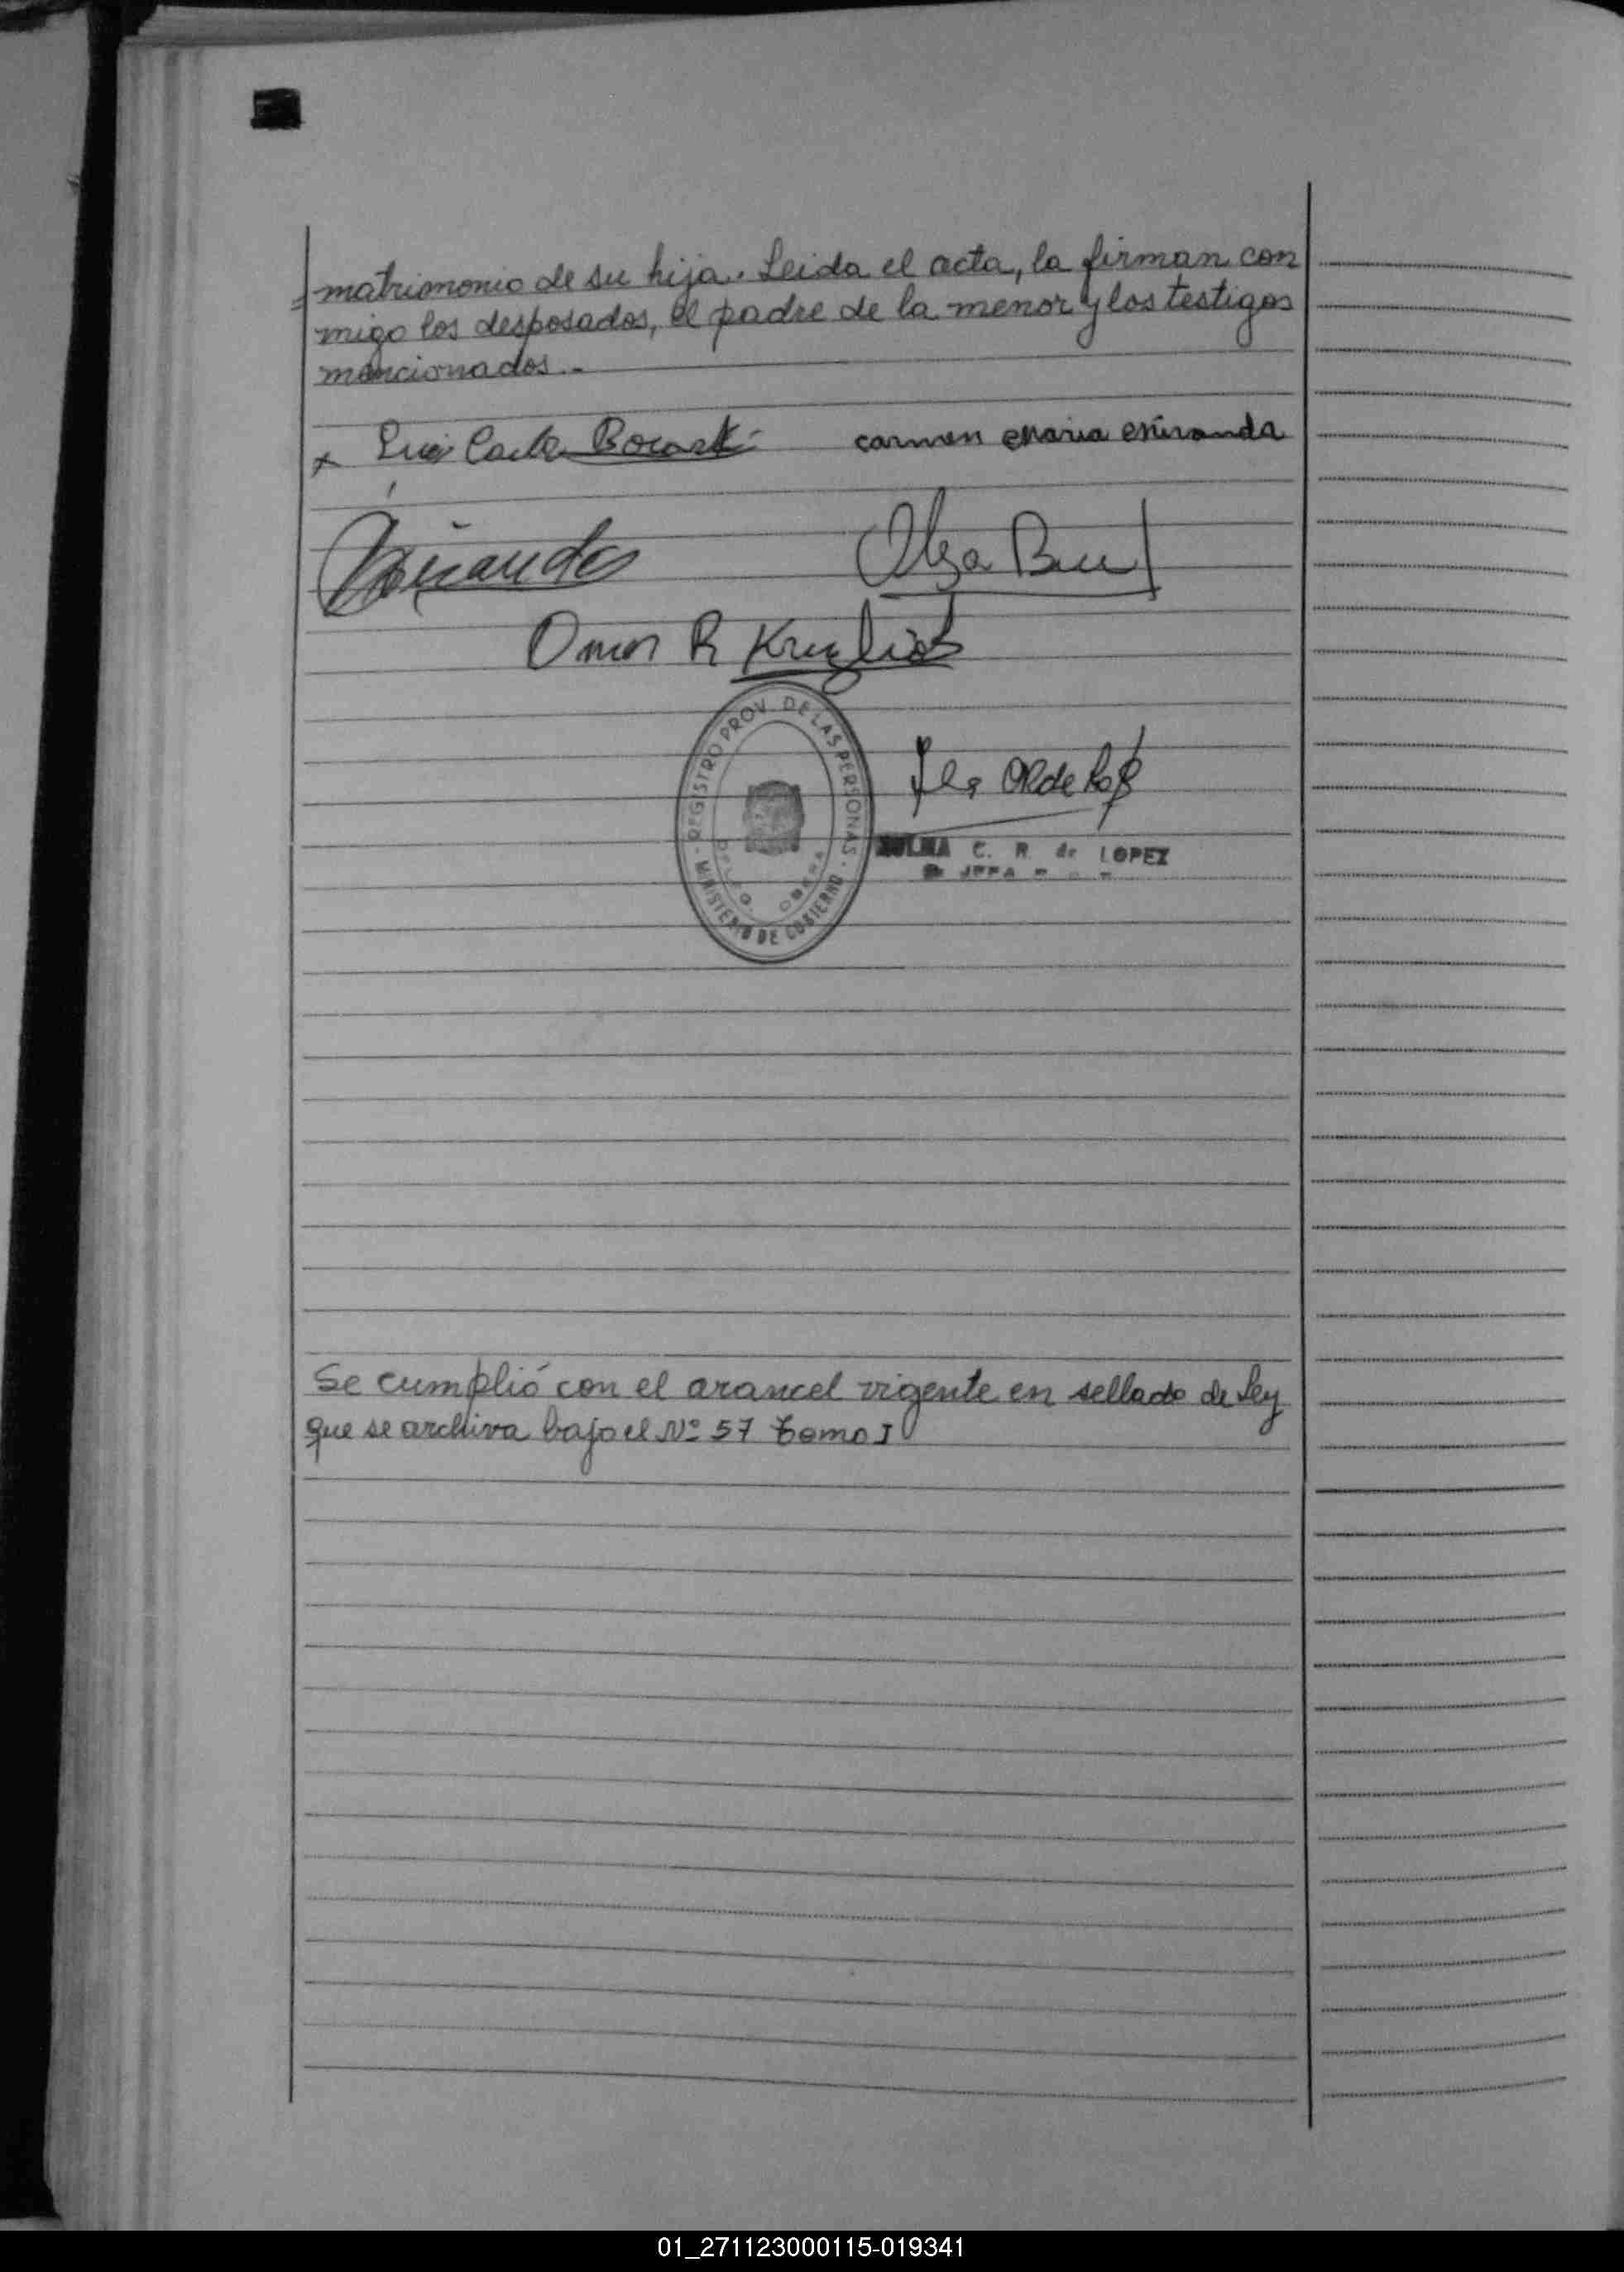 matrimonio de su hija. Leida el acta, la firman con
migo los desposados, el padre de la menor y los testigos
mencionados.-
x Luis Carlos carmen maria miranda
Olga
Omar R
REGISTRO PROV. DE LAS PERSONAS - MINISTERIO DE GOBIERNO -
DELEG. OBERA
C. R. de LOPEZ
JEFA
Se cumplió con el arancel vigente en sellado de Ley
que se archiva bajo el Nº 57 Tomo I
01_271123000115-019341